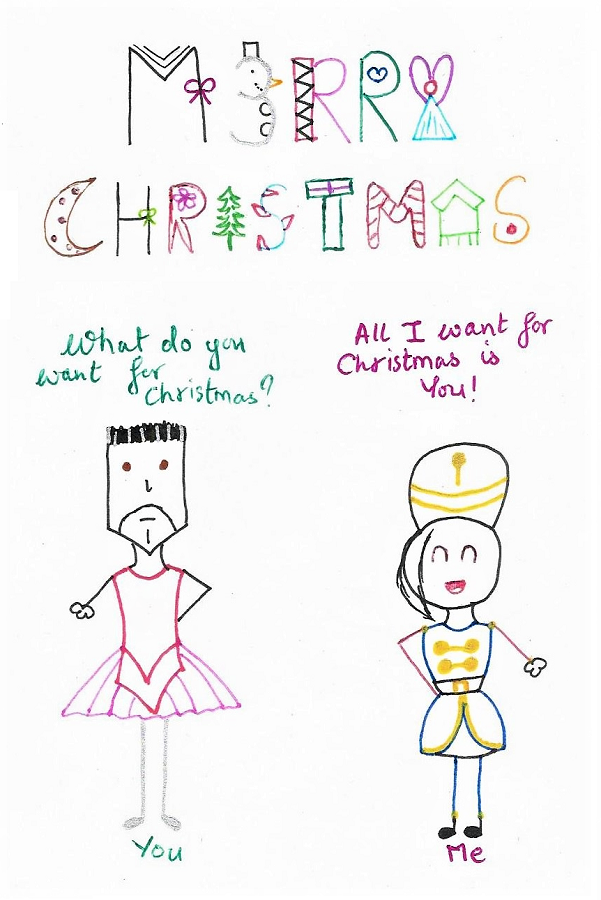 MERRY
CHRISTMAS
What do you
want for
Christmas?
All I want for
Christmas is
You!
You
Me